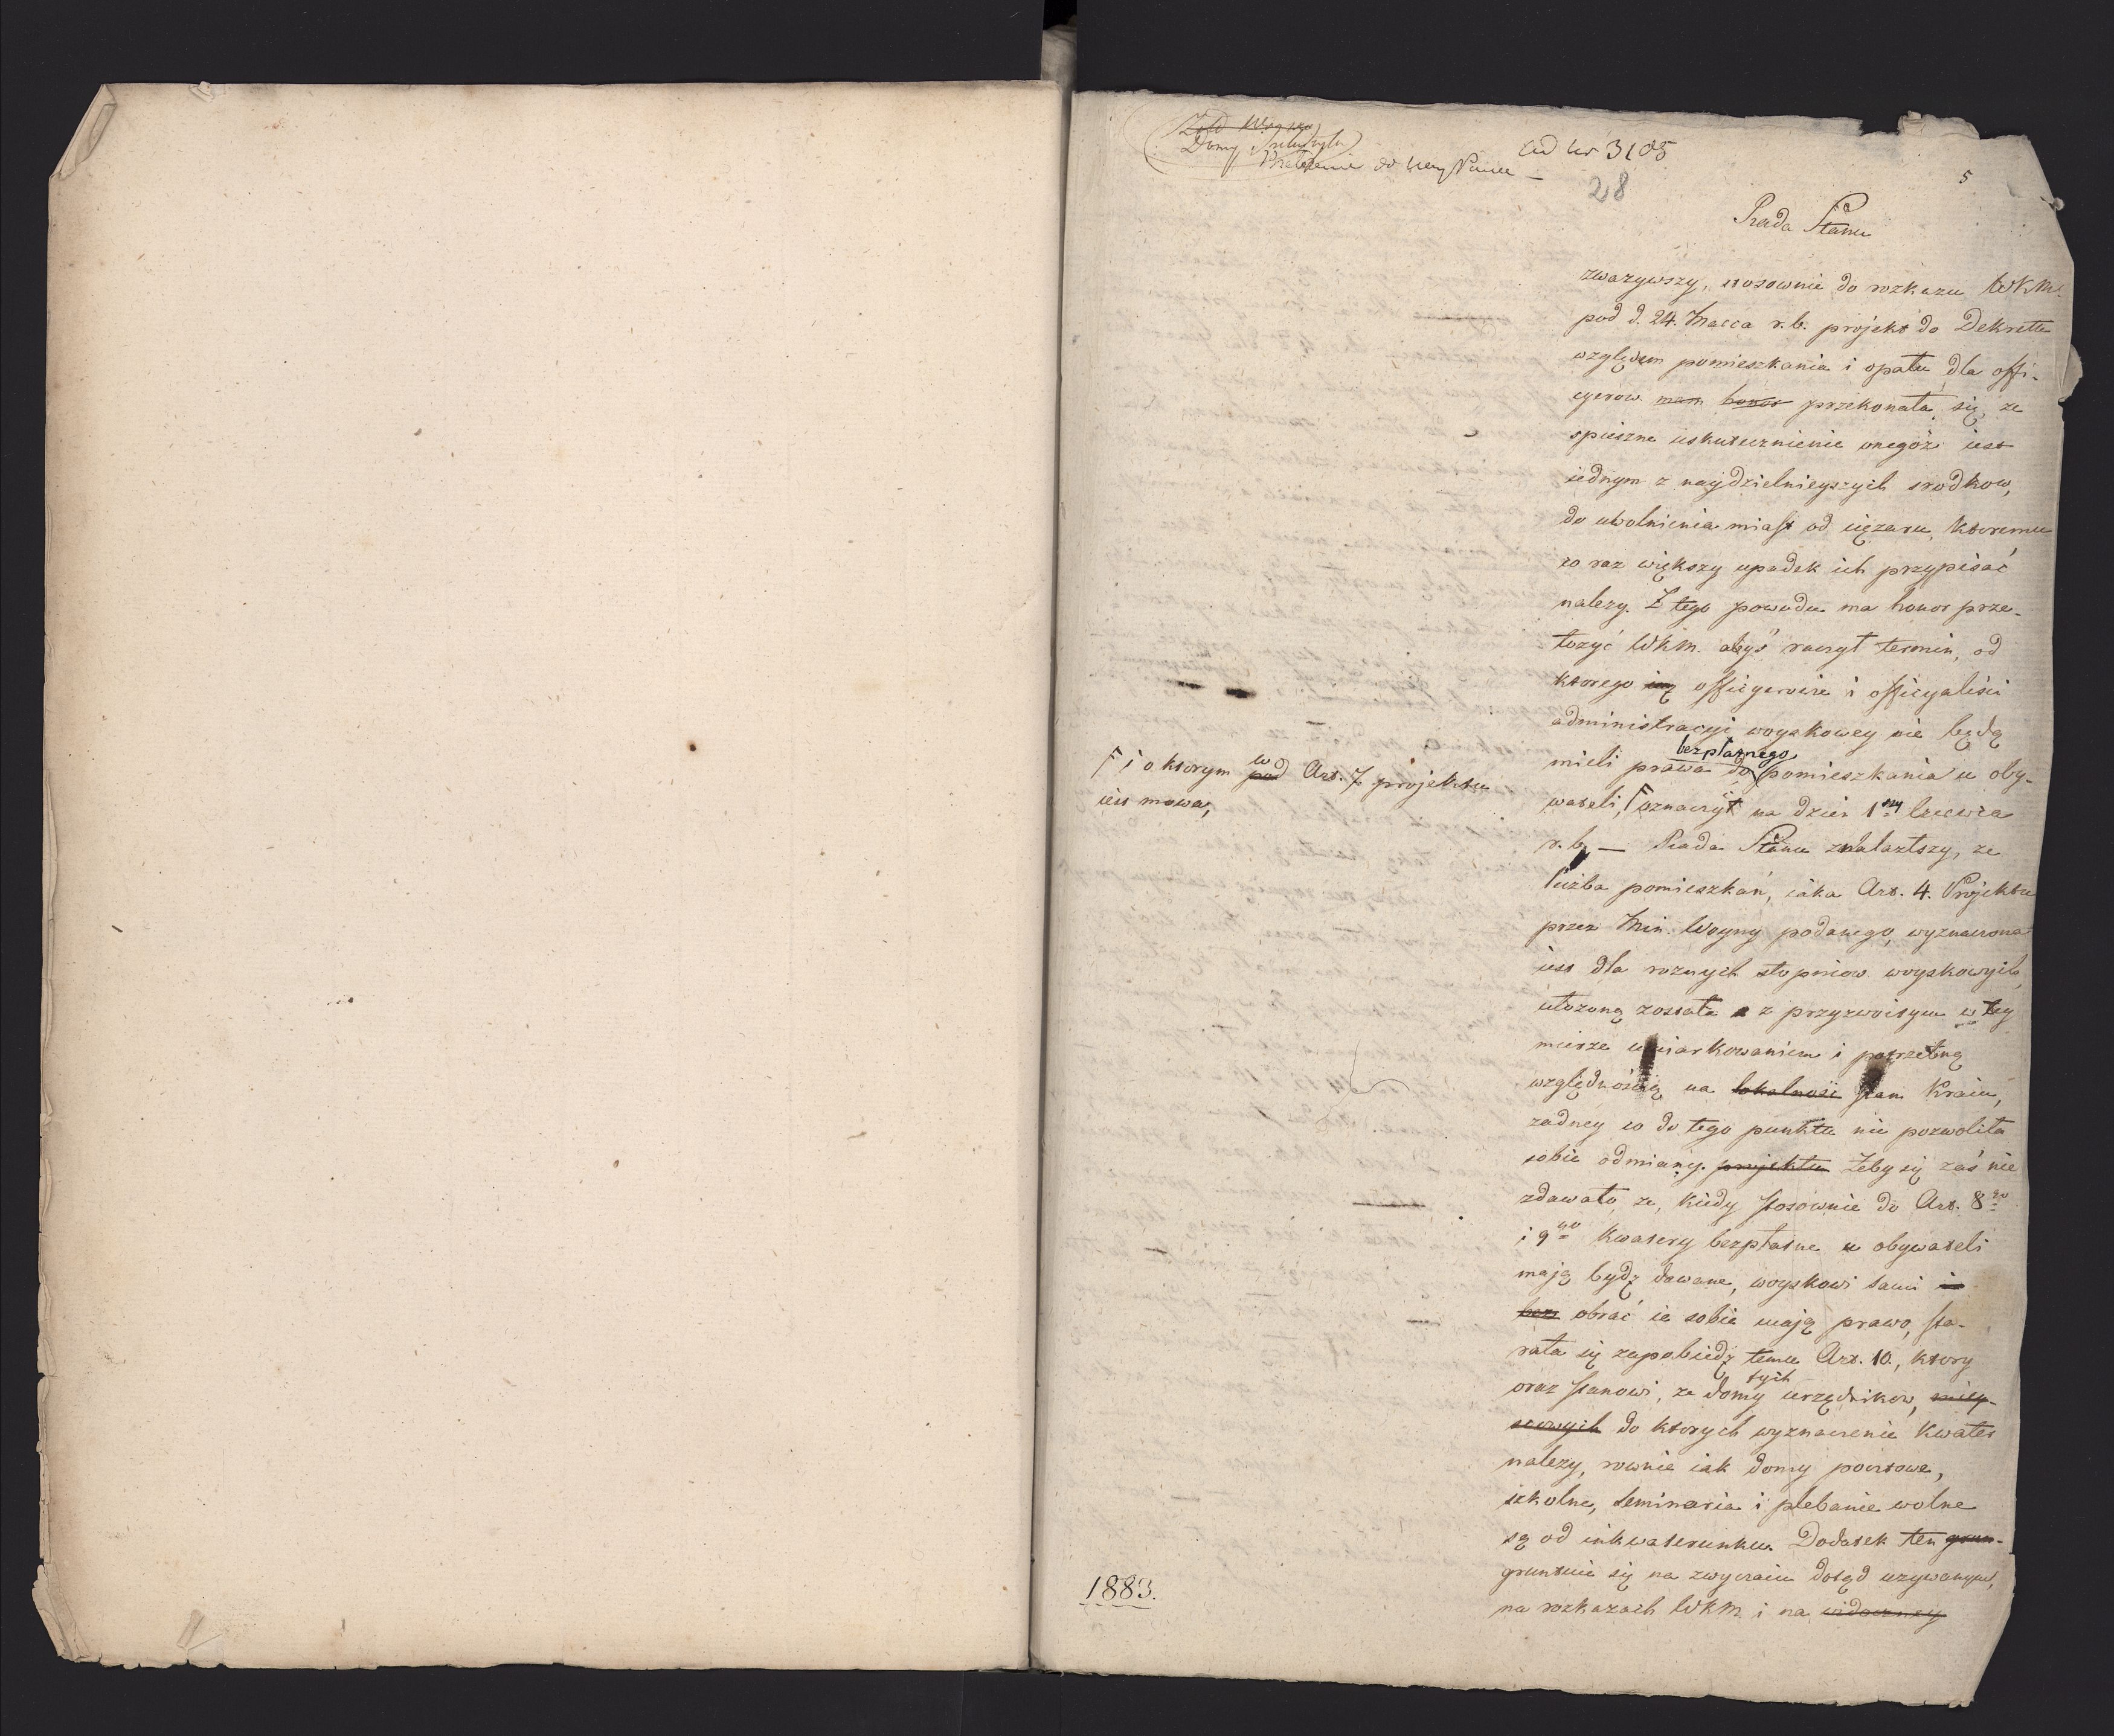 Domy
do
ad Nr 3105
28
5
Rada Stanu
zwazywszy, stosownie do rozkazu WKM.
pod d. 24. Marca r. b. projekt do Dekretu
względem pomieszkania i opału dla offi-
cyerow mam honor przekonała się, ze
spieszne uskutecznienie onegoż iest
iednym z naydzielnieyszych srodkow,
do uwolnienia miast od ciężaru, ktoremu
co raz większy upadek ich przypisać
nalezy. Z tego powodu ma honor prze-
łozyć WKM. abyś raczył termin, od
ktorego officyerowie i officyaliści
administracyi woyskowey nie będą
bezpłatnego
mieli prawa do pomieszkania u oby-
wateli, Γ oznaczyć na dzień 1szy Czerwca
Γ i o ktorym w pod Art. 7 projektu
iest mowa,
r. b. — Rada Stanu znalazłszy, ze
liczba pomieszkań, iaka Art. 4. Projektu
przez Min. Woyny podanego, wyznaczona
iest dla roznych stopniow woyskowych,
ułozoną została z przyzwoitym w tey
mierze umiarkowaniem i potrzebną
względnością na lokalność stan Kraiu,
zadney co do tego punktu nie pozwoliła
sobie odmiany. projektu Zeby się zaś nie
zdawało, ze, kiedy stosownie do Art. 8go
i 9go Kwatery bezpłatne u obywateli
mają bydź dawane, woyskowi sami i
bez obrać ie sobie mają prawo, sta-
rała się zapobiedz temu Art. 10., ktory
tych
oraz stanowi, ze domy urzędnikow, miey-
scowych do ktorych wyznaczenie Kwater
nalezy, rownie iak domy pocztowe,
szkolne, seminaria i plebanie wolne
są od inkwaterunku. Dodatek ten grun-
gruntuie się na zwyczaiu dotąd uzywanym,
na rozkazach WKM i na widoczney
1883.